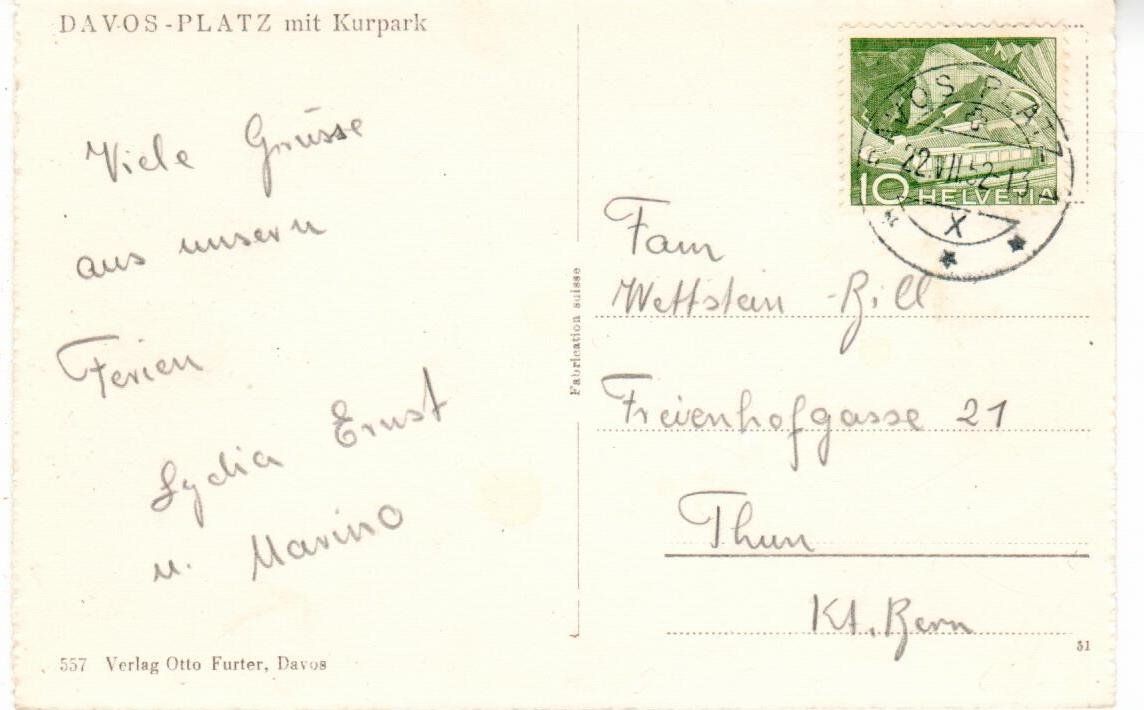 DAVOS-PLATZ mit Kurpark
Viele Grüsse
aus unsern
Ferien
Lydia Ernst
u. Marino
557 Verlag Otto Furter, Davos
Fabrication suisse
DAVOS PLATZ 1
22.VII.52-13
X
10 HELVETIA
Fam
Wettstein-Bill
Freienhofgasse 21
Thun
Kt. Bern
51